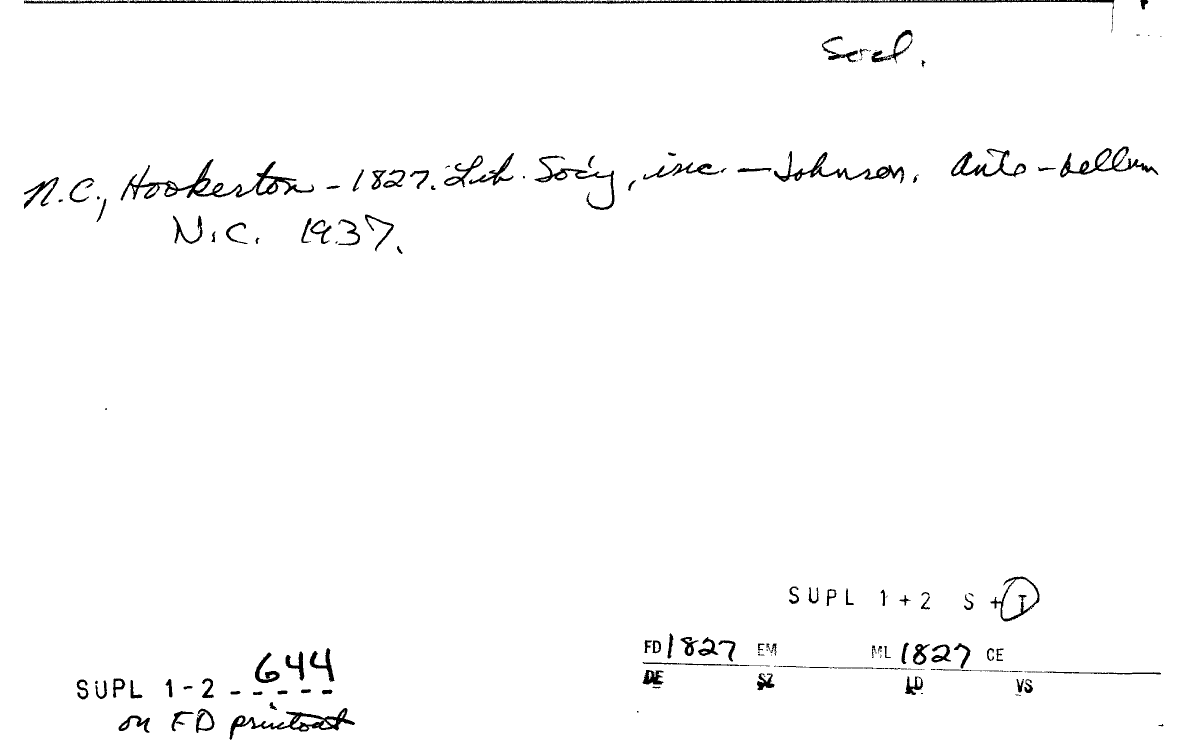 Socl.
N.C., Hookerton - 1827. Lib. Soc'y, inc. - Johnson. Ante-bellum
N.C. 1937.
SUPL 1+2 S + I
FD 1827 EM ML 1827 CE
DE SZ LD VS
644
SUPL 1-2 - - - - -
on FD printout